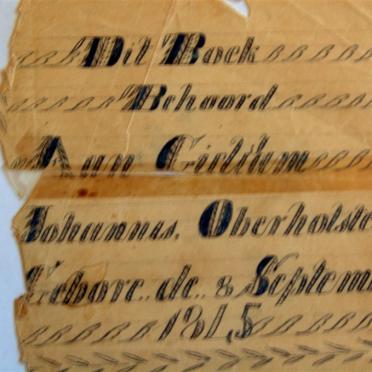 Dit Boek
Behoord
Aan
Johannis. Oberholste
Gebore.. de.. 8 Septem
1815